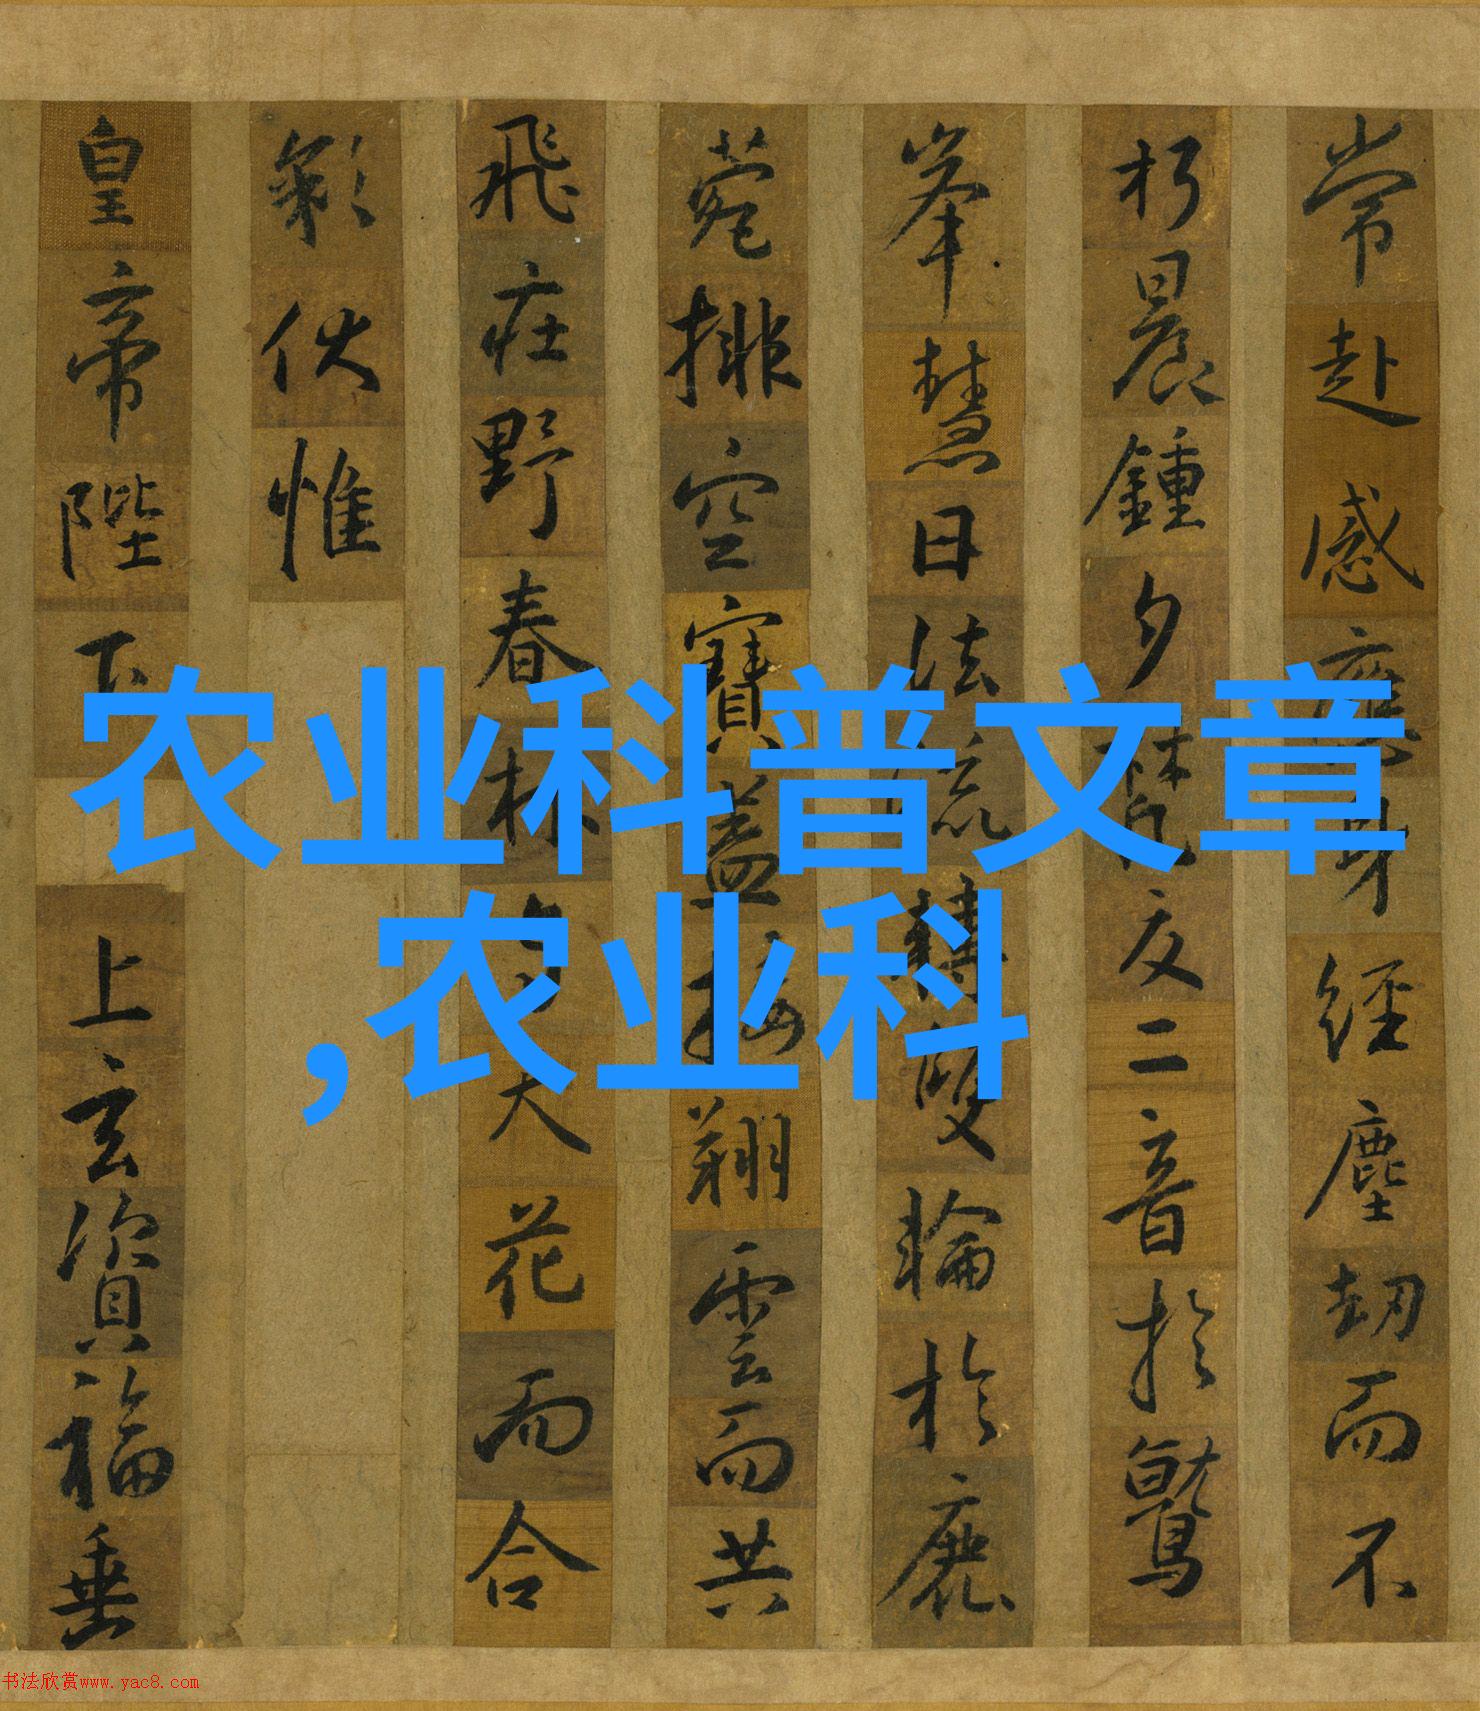 农业科普文章
,农业科
常赴感應身經塵劫而不
朽晨鍾夕梵交二音於鷲
峯慧日法流轉雙輪於鹿
菀排空寶蓋接翔雲而共
飛莊野春林与天花而合
彩伏惟
皇帝陛下上玄資福垂
书法欣赏www.yac8.com